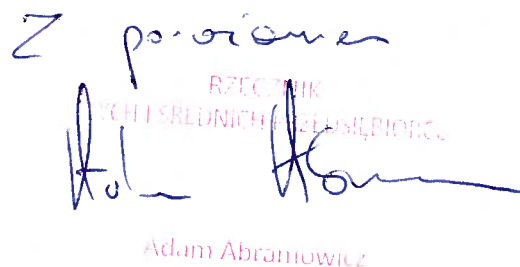 Z poważaniem
RZECZNIK
YCH I ŚREDNICH PRZEDSIĘBIORCÓW
Adam Abramowicz